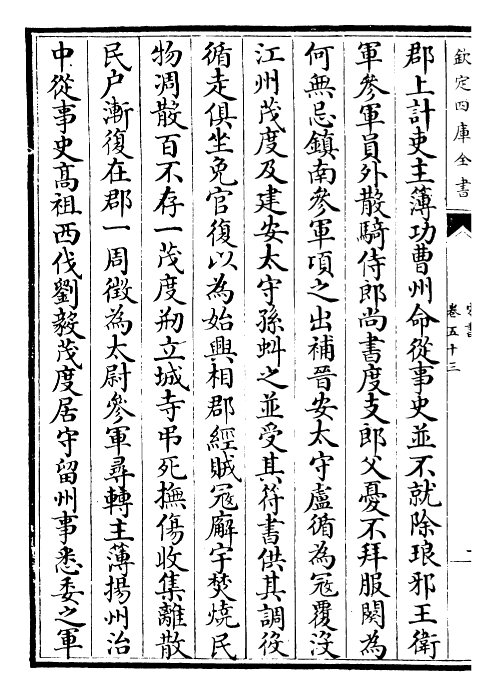 欽定四庫全書
宋書
卷五十三
一
郡上計吏主簿功曹州命從事史並不就除琅邪王衛
軍參軍員外散騎侍郎尚書度支郎父憂不拜服闋為
何無忌鎮南參軍項之出補晉安太守盧循為冦覆沒
江州茂度及建安太守孫蚪之並受其符書供其調役
循走俱坐免官復以為始興相郡經賊冦廨宇焚燒民
物凋散百不存一茂度刱立城寺弔死撫傷收集離散
民户漸復在郡一周徵為太尉參軍尋轉主薄揚州治
中從事史髙祖西伐劉毅茂度居守留州事悉委之軍